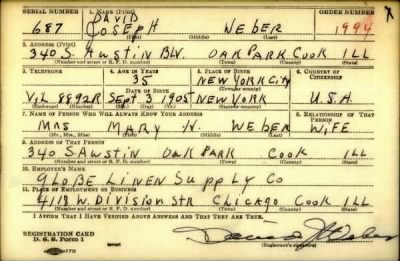 SERIAL NUMBER 1. NAME (Print) 
687 DAVID JOSEPH WEBER 1994
(First) (Middle) (Last)
2. ADDRESS (Print)
340 S. AUSTIN BLV. OAK PARK COOK ILL
(Number and street or R. F. D. number) (Town) (County) (State)
3. TELEPHONE 4. AGE IN YEARS 5. PLACE OF BIRTH 6. COUNTRY OF CITIZENSHIP
35 NEW YORK CITY
DATE OF BIRTH (Town or county)
VIL 8892R SEPT. 3 1905 NEW YORK U.S.A.
(Exchange) (No.) (Mo.) (Day) (Yr.) (State or country)
7. NAME OF PERSON WHO WILL ALWAYS KNOW YOUR ADDRESS 8. RELATIONSHIP OF THAT PERSON
MRS MARY WEBER WIFE
(Mr., Mrs., Miss) (First) (Middle) (Last)
9. ADDRESS OF THAT PERSON
340 S AUSTIN OAK PARK COOK ILL
(Number and street or R. F. D. number) (Town) (County) (State)
10. EMPLOYER'S NAME
GLOBE LINEN SUPPLY CO
11. PLACE OF EMPLOYMENT OR BUSINESS
4118 W. DIVISION STR CHICAGO COOK ILL
(Number and street or R. F. D. number) (Town) (County) (State)
I AFFIRM THAT I HAVE VERIFIED ABOVE ANSWERS AND THAT THEY ARE TRUE.
REGISTRATION CARD
D. S. S. Form 1
David J Weber